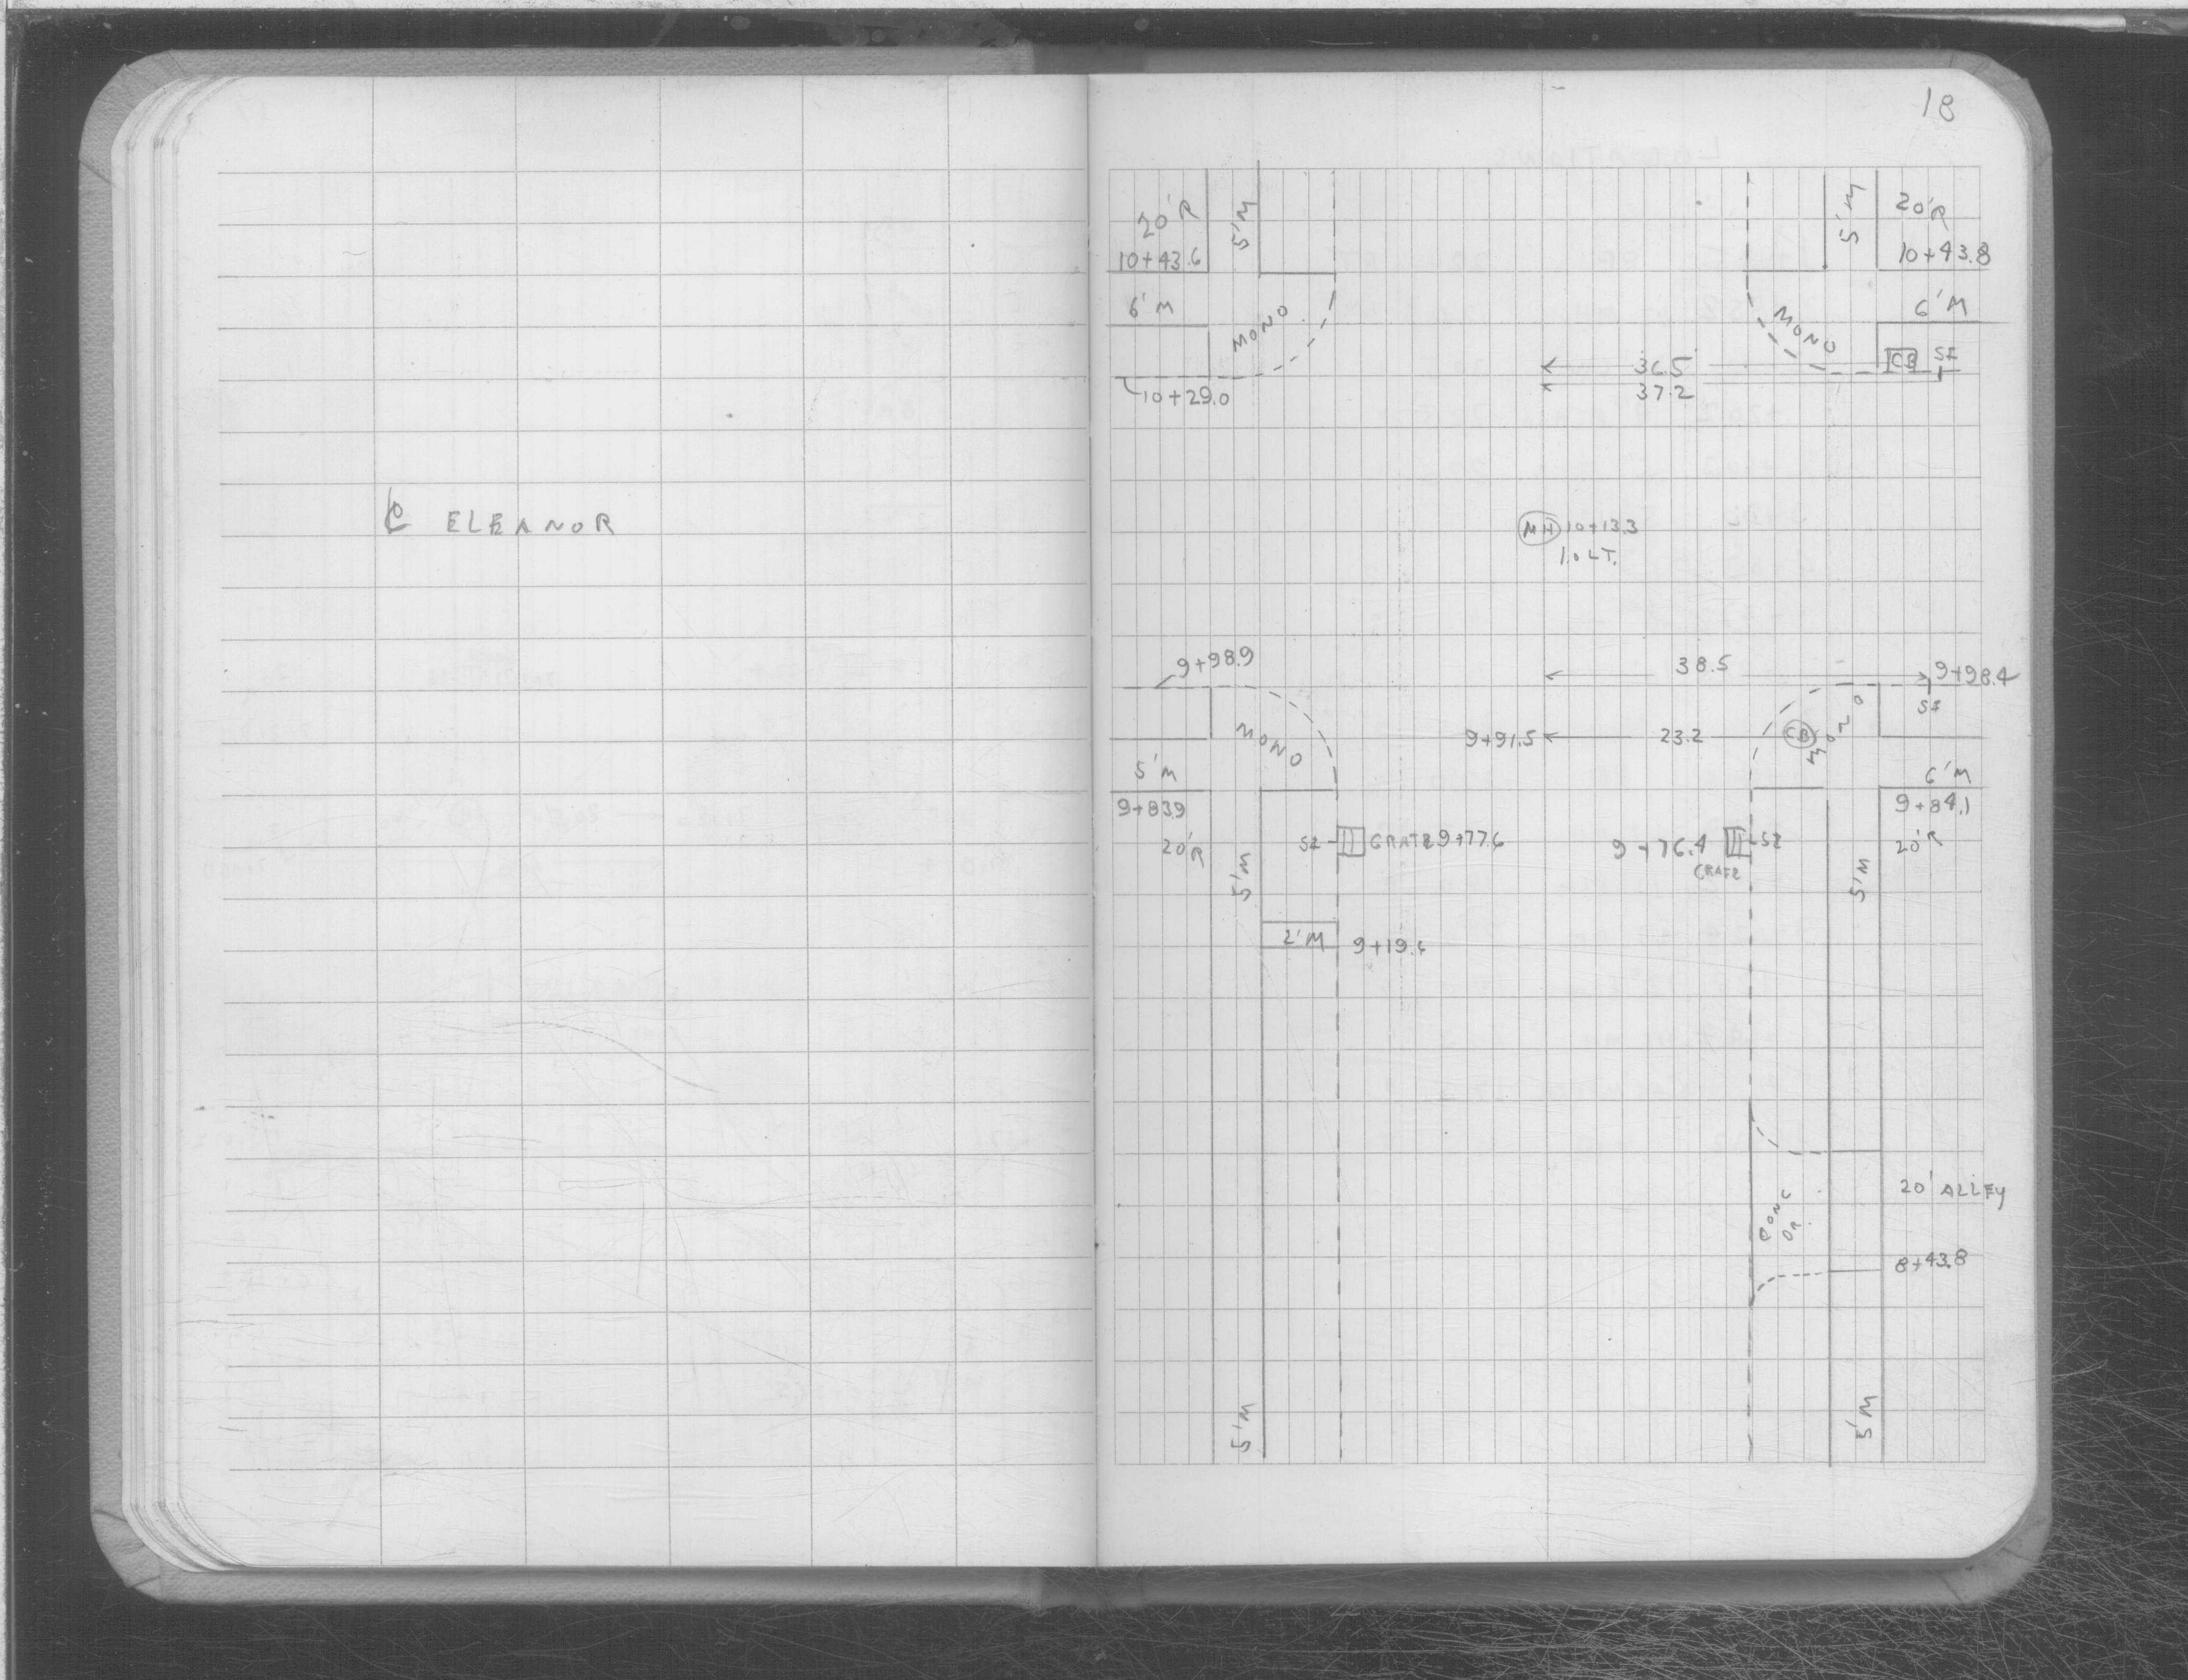 18
20'R 5'M 5'M 20'R
10+43.6 10+43.8
6'M MONO MONO 6'M
36.5 CB SI
10+29.0 37.2
℄ ELEANOR
MH 10+13.3
1.0 LT.
9+98.9 38.5 9+98.4
SI
MONO 9+91.5 23.2 CB MONO
5'M 6'M
9+83.9 9+84.1
20'R 5'M SI GRATE 9+77.6 9+76.4 SI 5'M 20'R
GRATE
2'M 9+19.6
20' ALLEY
CONC
DR.
8+43.8
5'M 5'M